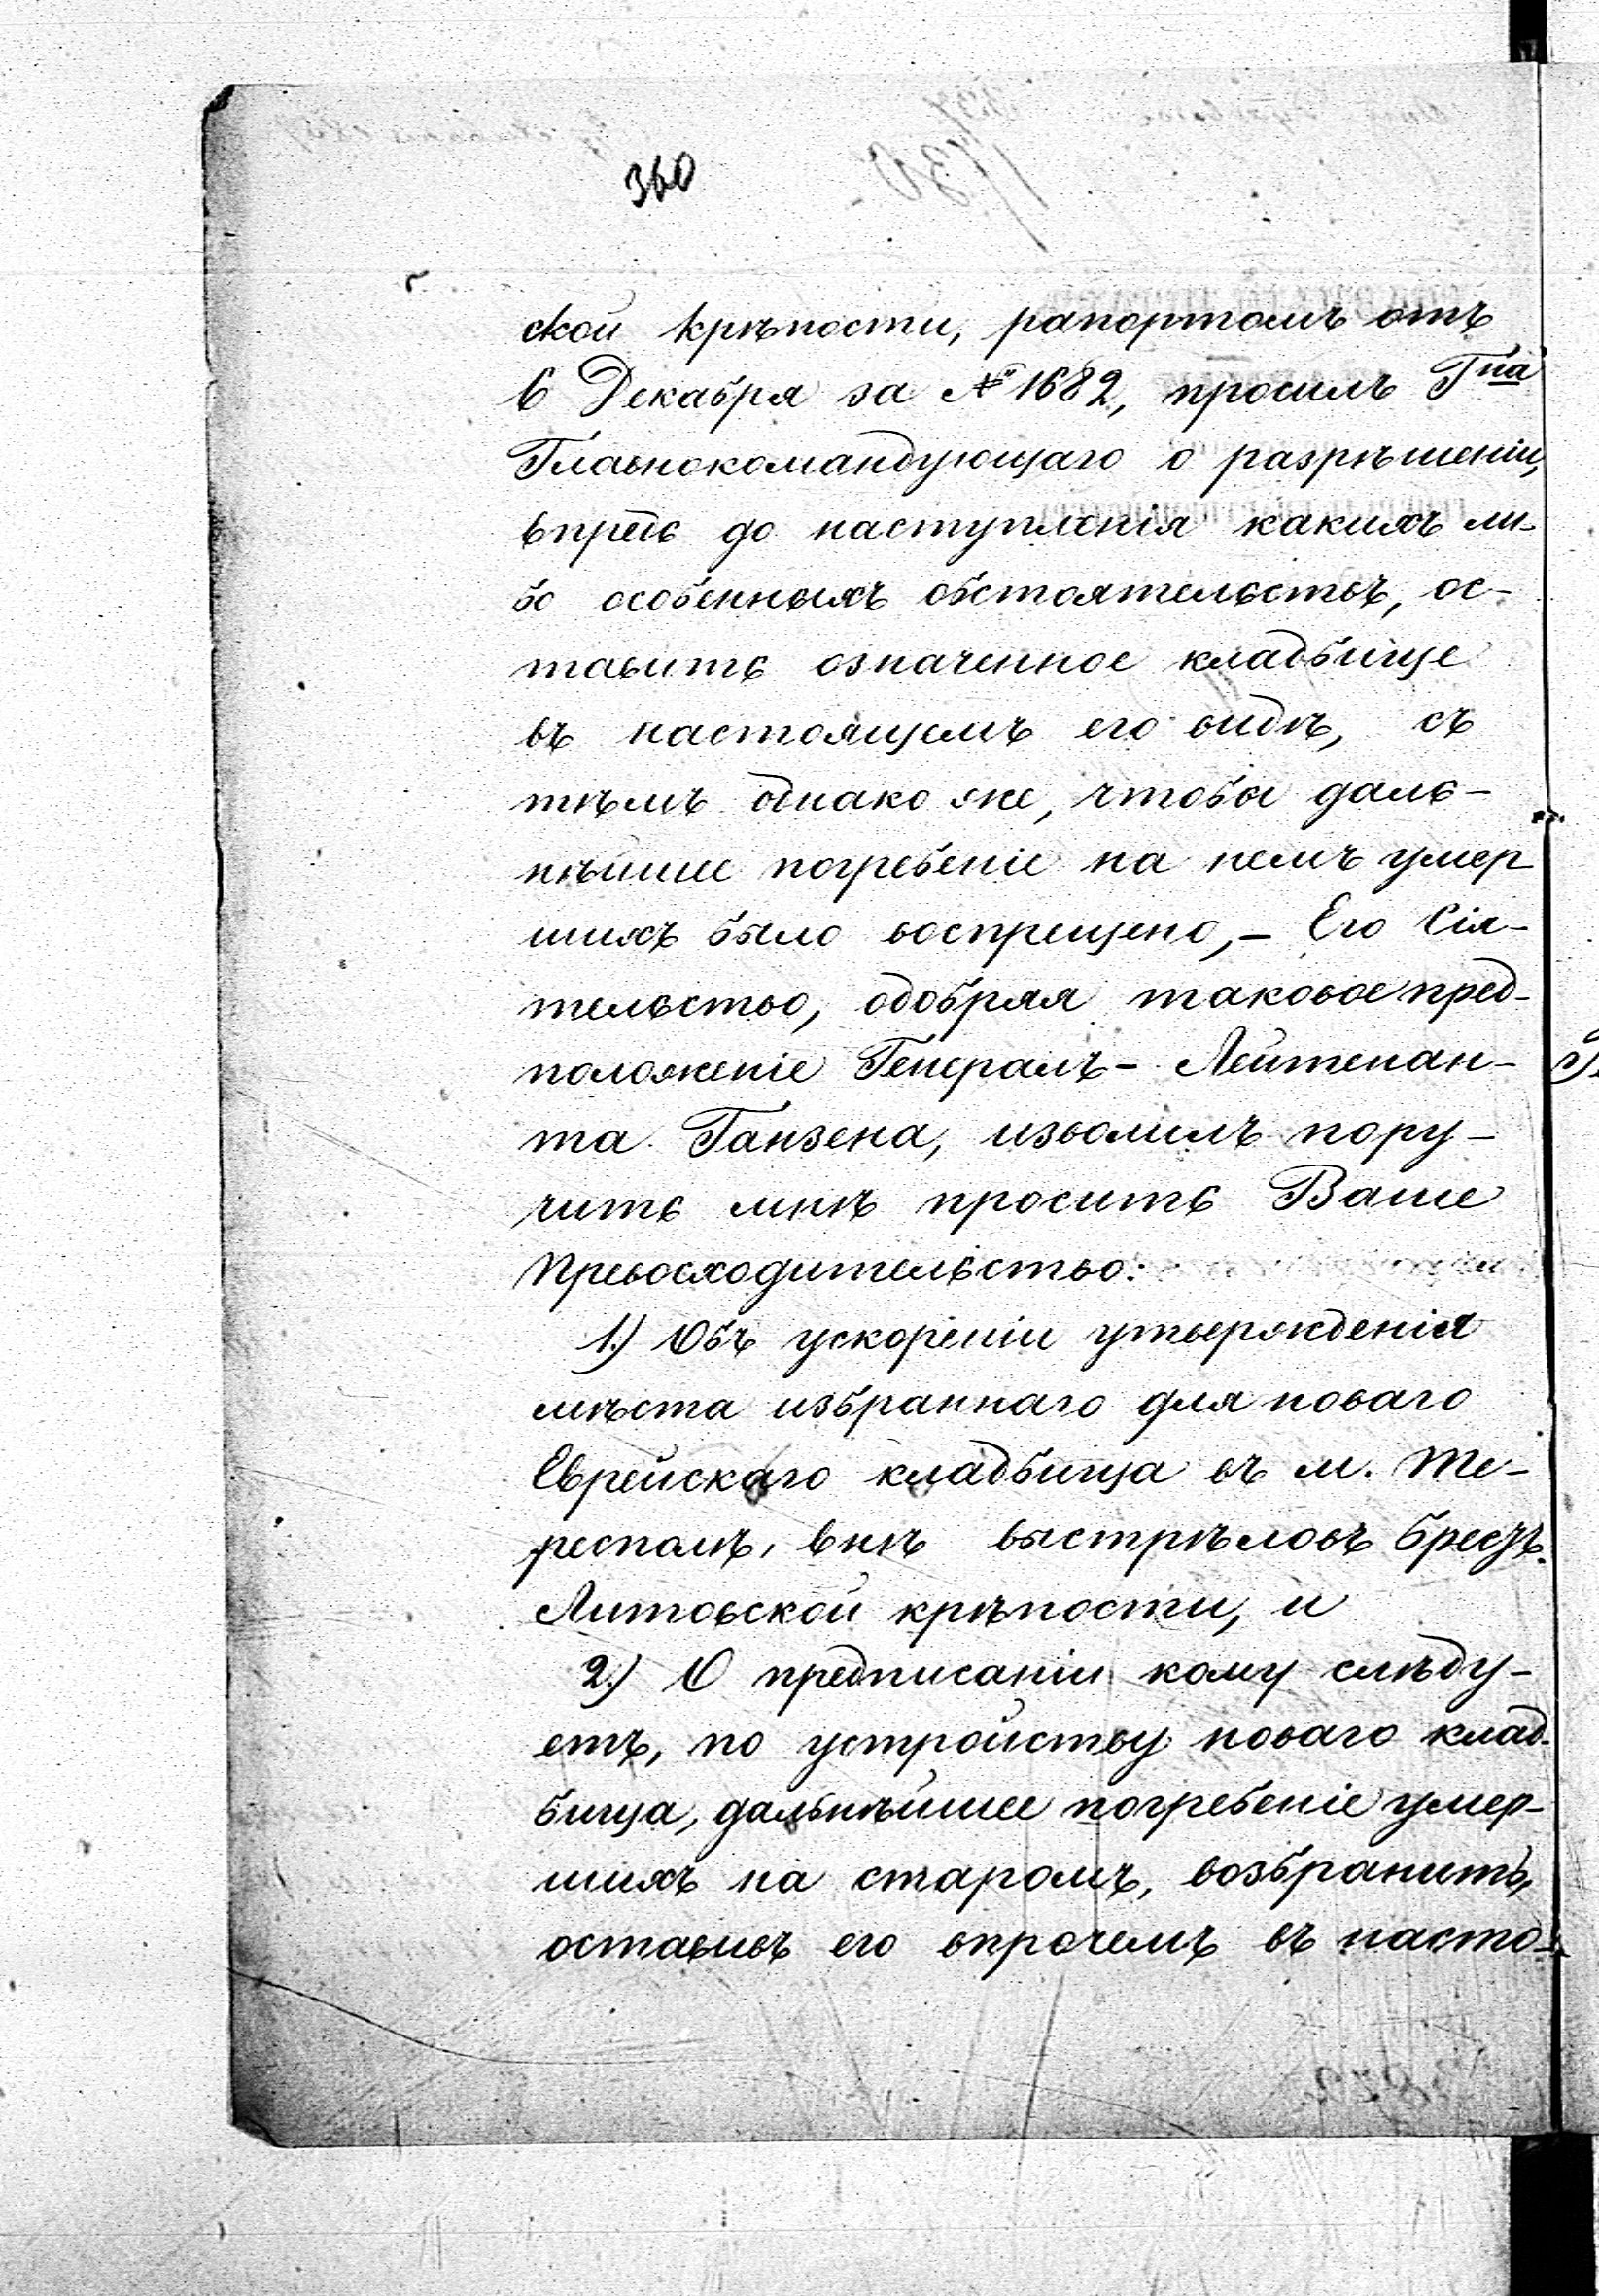 360
ской крѣпости, рапортомъ отъ
6 Декабря за № 1682, просилъ Гна
Главнокомандующаго о разрѣшеніи,
впредь до наступленія какихъ ли-
бо особенныхъ обстоятельствъ, ос-
тавить означенное кладбище
въ настоящемъ его видѣ, съ
тѣмъ однако же, чтобы даль-
нѣйшее погребеніе на немъ умер
шихъ было воспрещено,- Его Сія-
тельство, одобряя таковое пред-
положеніе Генералъ-Лейтенан-
та Ганзена, изволилъ пору-
чить мнѣ просить Ваше
Превосходительство:
1.) Объ ускореніи утвержденія
мѣста избраннаго для новаго
Еврейскаго кладбища въ м. Те-
респолѣ, внѣ выстрѣловъ Брестъ-
Литовской крѣпости, и
2.) О предписаніи кому слѣду-
етъ, по устройству новаго клад-
бища, дальнѣйшее погребеніе умер-
шихъ на старомъ, возбранить,
оставивъ его впрочемъ въ насто-